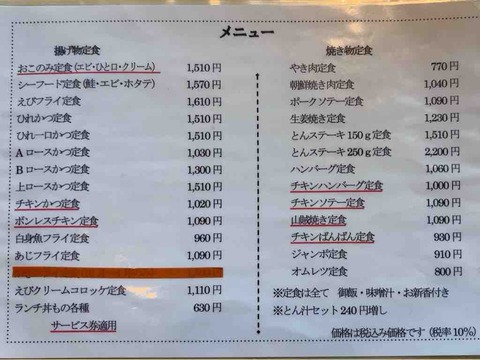 メニュー
揚げ物定食
おこのみ定食(エビ・ひと口・クリーム) 1,510円
シーフード定食(鮭・エビ・ホタテ) 1,570円
えびフライ定食 1,610円
ひれかつ定食 1,510円
ひれ一口かつ定食 1,510円
Aロースかつ定食 1,030円
Bロースかつ定食 1,300円
上ロースかつ定食 1,510円
チキンかつ定食 1,020円
ボンレスチキン定食 1,090円
白身魚フライ定食 960円
あじフライ定食 1,090円
えびクリームコロッケ定食 1,110円
ランチ丼もの各種 630円
サービス券適用
焼き物定食
やき肉定食 770円
朝鮮焼き肉定食 1,040円
ポークソテー定食 1,090円
生姜焼き定食 1,230円
とんステーキ150g定食 1,510円
とんステーキ250g定食 2,200円
ハンバーグ定食 1,060円
チキンハンバーグ定食 1,000円
チキンソテー定食 1,090円
山賊焼き定食 1,090円
チキンばんばん定食 930円
ジャンボ定食 910円
オムレツ定食 800円
※定食は全て 御飯・味噌汁・お新香付き
※とん汁セット240円増し
価格は税込み価格です(税率10%)